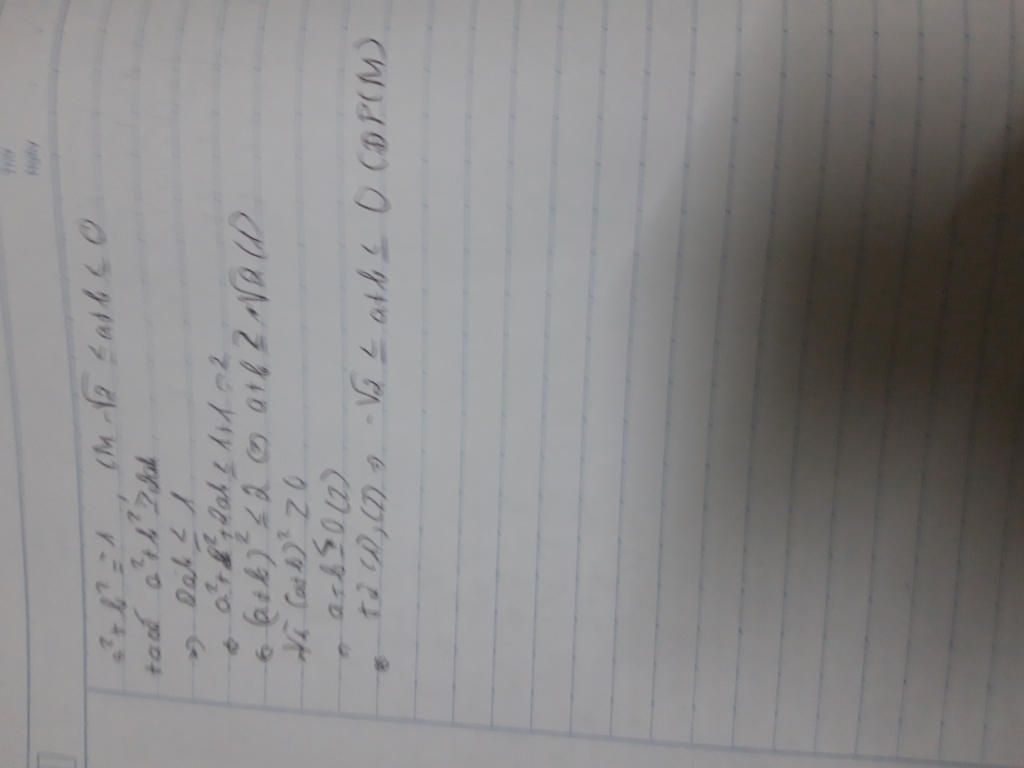 a² + b² = 1, CM -√2 ≤ a+b ≤ 0
+ a có a² + b² ≥ 2ab
=> 2ab ≤ 1
<=> a² + b² + 2ab ≤ 1+1 = 2
<=> (a+b)² ≤ 2 <=> a+b ≥ √2 (1)
Vì (a+b)² ≥ 0
=> a+b ≤ 0 (2)
từ (1), (2) => -√2 ≤ a+b ≤ 0 (ĐPCM)